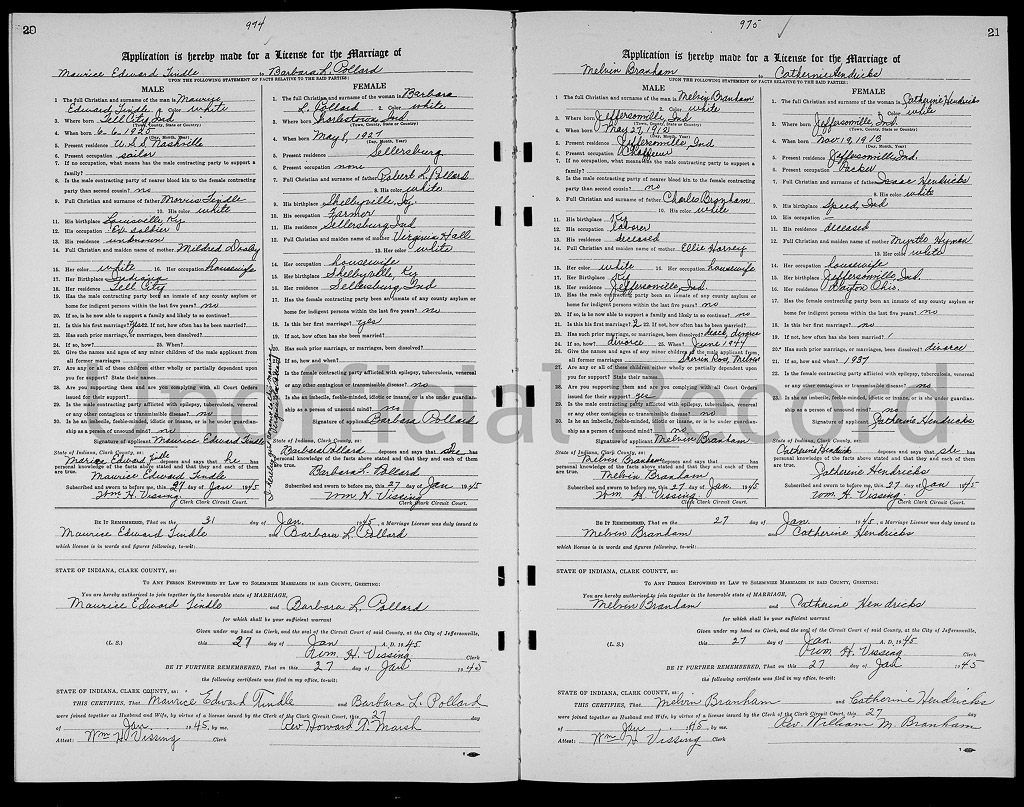 20
974
Application is hereby made for a License for the Marriage of
Maurice Edward Tindle to Barbara L. Pollard
UPON THE FOLLOWING STATEMENT OF FACTS RELATIVE TO THE SAID PARTIES:
MALE
1. The full Christian and surname of the man is Maurice
Edward Tindle 2. Color white
3. Where born Tell City Ind
(Town, County, State or Country)
4. When born 6-6-1925
(Day, Month, Year)
5. Present residence U.S.S. Nashville
6. Present occupation sailor
7. If no occupation, what means has the male contracting party to support a
family?
8. Is the male contracting party of nearer blood kin to the female contracting
party than second cousin? no
9. Full Christian and surname of father Morris Tindle
10. His color white
11. His birthplace Louisville, Ky
12. His occupation soldier
13. His residence unknown
14. Full Christian and maiden name of mother Mildred
15. Her color white 16. Her occupation housewife
17. Her Birthplace Indiana
18. Her residence Tell City
19. Has the male contracting party been an inmate of any county asylum or
home for indigent persons within the last five years? no
20. If so, is he now able to support a family and likely to so continue?
21. Is this his first marriage? yes 22. If not, how often has he been married?
23. Has such prior marriage, or marriages, been dissolved?
24. If so, how? 25. When?
26. Give the names and ages of any minor children of the male applicant from
all former marriages
27. Are any or all of these children either wholly or partially dependent upon
you for support? State their names
28. Are you supporting them and are you complying with all Court Orders
issued for their support?
29. Is the male contracting party afflicted with epilepsy, tuberculosis, venereal
or any other contagious or transmissible disease? no
30. Is he an imbecile, feeble-minded, idiotic or insane, or is he under guardian-
ship as a person of unsound mind? no
Signature of applicant Maurice Edward Tindle
State of Indiana, Clark County, ss:
Maurice Edward Tindle deposes and says that he has
personal knowledge of the facts above stated and that they and each of them
are true.
Maurice Edward Tindle
Subscribed and sworn to before me, this 27 day of Jan 1945
Wm. H. Vissing Clerk Clark Circuit Court
FEMALE
1. The full Christian and surname of the woman is Barbara
L. Pollard 2. Color white
3. Where born Charlestown Ind
(Town, County, State or Country)
4. When born May 8, 1927
(Day, Month, Year)
5. Present residence Sellersburg
6. Present occupation none
7. Full Christian and surname of father Robert L. Pollard
8. His color white
9. His birthplace Shelbyville, Ky.
10. His occupation Farmer
11. His residence Sellersburg Ind
12. Full Christian and maiden name of mother Virginia Hall
13. Her color white
14. Her occupation housewife
15. Her birthplace Shelbyville, Ky
16. Her residence Sellersburg Ind
17. Has the female contracting party been an inmate of any county asylum or
home for indigent persons within the last five years? no
18. Is this her first marriage? yes
19. If not, how often has she been married?
20. Has such prior marriage, or marriages, been dissolved?
21. If so, how and when?
22. Is the female contracting party afflicted with epilepsy, tuberculosis, venereal
or any other contagious or transmissible disease? no
Is she an imbecile, feeble-minded, idiotic or insane, or is she under guardian-
ship as a person of unsound mind? no
Signature of applicant Barbara Pollard
State of Indiana, Clark County, ss:
Barbara Pollard deposes and says that she has
personal knowledge of the facts above stated and that they and each of them
are true.
Barbara L. Pollard
Subscribed and sworn to before me, this 27 day of Jan 1945
Wm. H. Vissing Clerk Clark Circuit Court
BE IT REMEMBERED, That on the 31 day of Jan. 1945, a Marriage License was duly issued to
Maurice Edward Tindle and Barbara L. Pollard
which license is in words and figures following, to-wit:
STATE OF INDIANA, CLARK COUNTY, ss:
TO ANY PERSON EMPOWERED BY LAW TO SOLEMNIZE MARRIAGES IN SAID COUNTY, GREETING:
You are hereby authorized to join together in the honorable state of MARRIAGE,
Maurice Edward Tindle and Barbara L. Pollard
for which shall be your sufficient warrant
Given under my hand as Clerk, and the seal of the Circuit Court of said County, at the City of Jeffersonville,
(L. S.) this 27 day of Jan A. D. 1945
Wm. H. Vissing Clerk
BE IT FURTHER REMEMBERED, That on this 27 day of Jan 1945
the following certificate was filed in my office, to-wit:
STATE OF INDIANA, CLARK COUNTY, ss:
THIS CERTIFIES, That Maurice Edward Tindle and Barbara L. Pollard
were joined together as Husband and Wife, by virtue of a license issued by the Clerk of the Clark Circuit Court, this 27 day
of Jan. 1945, by me. Rev Howard W. Marsh
Attest: Wm H Vissing Clerk
21
975
Application is hereby made for a License for the Marriage of
Melvin Branham to Catherine Hendricks
UPON THE FOLLOWING STATEMENT OF FACTS RELATIVE TO THE SAID PARTIES:
MALE
1. The full Christian and surname of the man is Melvin Branham
2. Color white
3. Where born Jeffersonville, Ind
(Town, County, State or Country)
4. When born May 27, 1912
(Day, Month, Year)
5. Present residence Jeffersonville, Ind
6. Present occupation
7. If no occupation, what means has the male contracting party to support a
family?
8. Is the male contracting party of nearer blood kin to the female contracting
party than second cousin? no
9. Full Christian and surname of father Charles Branham
10. His color white
11. His birthplace Ky
12. His occupation laborer
13. His residence deceased
14. Full Christian and maiden name of mother Ellie Harvey
15. Her color white 16. Her occupation housewife
17. Her Birthplace Ky
18. Her residence Jeffersonville, Ind.
19. Has the male contracting party been an inmate of any county asylum or
home for indigent persons within the last five years? no
20. If so, is he now able to support a family and likely to so continue? no
21. Is this his first marriage? 2 22. If not, how often has he been married?
23. Has such prior marriage, or marriages, been dissolved? dead, divorce
24. If so, how? divorce 25. When? June 1944
26. Give the names and ages of any minor children of the male applicant from
all former marriages
27. Are any or all of these children either wholly or partially dependent upon
you for support? State their names
28. Are you supporting them and are you complying with all Court Orders
issued for their support? yes
29. Is the male contracting party afflicted with epilepsy, tuberculosis, venereal
or any other contagious or transmissible disease? no
30. Is he an imbecile, feeble-minded, idiotic or insane, or is he under guardian-
ship as a person of unsound mind? no
Signature of applicant Melvin Branham
State of Indiana, Clark County, ss:
Melvin Branham deposes and says that he has
personal knowledge of the facts above stated and that they and each of them
are true.
Melvin Branham
Subscribed and sworn to before me, this 27 day of Jan. 1945
Wm. H. Vissing Clerk Clark Circuit Court
FEMALE
1. The full Christian and surname of the woman is Catherine Hendricks
2. Color white
3. Where born Jeffersonville, Ind
(Town, County, State or Country)
4. When born Nov. 19, 1913
(Day, Month, Year)
5. Present residence Jeffersonville, Ind.
6. Present occupation Packer
7. Full Christian and surname of father Isaac Hendricks
8. His color white
9. His birthplace Speed, Ind
10. His occupation
11. His residence deceased
12. Full Christian and maiden name of mother Myrtle Hyman
13. Her color white
14. Her occupation housewife
15. Her birthplace Jeffersonville, Ind.
16. Her residence Dayton Ohio.
17. Has the female contracting party been an inmate of any county asylum or
home for indigent persons within the last five years? no
18. Is this her first marriage? no
19. If not, how often has she been married? 1
20. Has such prior marriage, or marriages, been dissolved? divorce
21. If so, how and when? 1937
22. Is the female contracting party afflicted with epilepsy, tuberculosis, venereal
or any other contagious or transmissible disease? no
Is she an imbecile, feeble-minded, idiotic or insane, or is she under guardian-
ship as a person of unsound mind? no
Signature of applicant Catherine Hendricks
State of Indiana, Clark County, ss:
Catherine Hendricks deposes and says that she has
personal knowledge of the facts above stated and that they and each of them
are true.
Catherine Hendricks
Subscribed and sworn to before me, this 27 day of Jan 1945
Wm. H. Vissing Clerk Clark Circuit Court
BE IT REMEMBERED, That on the 27 day of Jan. 1945, a Marriage License was duly issued to
Melvin Branham and Catherine Hendricks
which license is in words and figures following, to-wit:
STATE OF INDIANA, CLARK COUNTY, ss:
TO ANY PERSON EMPOWERED BY LAW TO SOLEMNIZE MARRIAGES IN SAID COUNTY, GREETING:
You are hereby authorized to join together in the honorable state of MARRIAGE,
Melvin Branham and Catherine Hendricks
for which shall be your sufficient warrant
Given under my hand as Clerk, and the seal of the Circuit Court of said County, at the City of Jeffersonville,
(L. S.) this 27 day of Jan. A. D. 1945
Wm. H. Vissing Clerk
BE IT FURTHER REMEMBERED, That on this 27 day of Jan 1945
the following certificate was filed in my office, to-wit:
STATE OF INDIANA, CLARK COUNTY, ss:
THIS CERTIFIES, That Melvin Branham and Catherine Hendricks
were joined together as Husband and Wife, by virtue of a license issued by the Clerk of the Clark Circuit Court, this 27 day
of Jan. 1945, by me. Rev. William M. Branham
Attest: Wm H Vissing Clerk
Unofficial Record